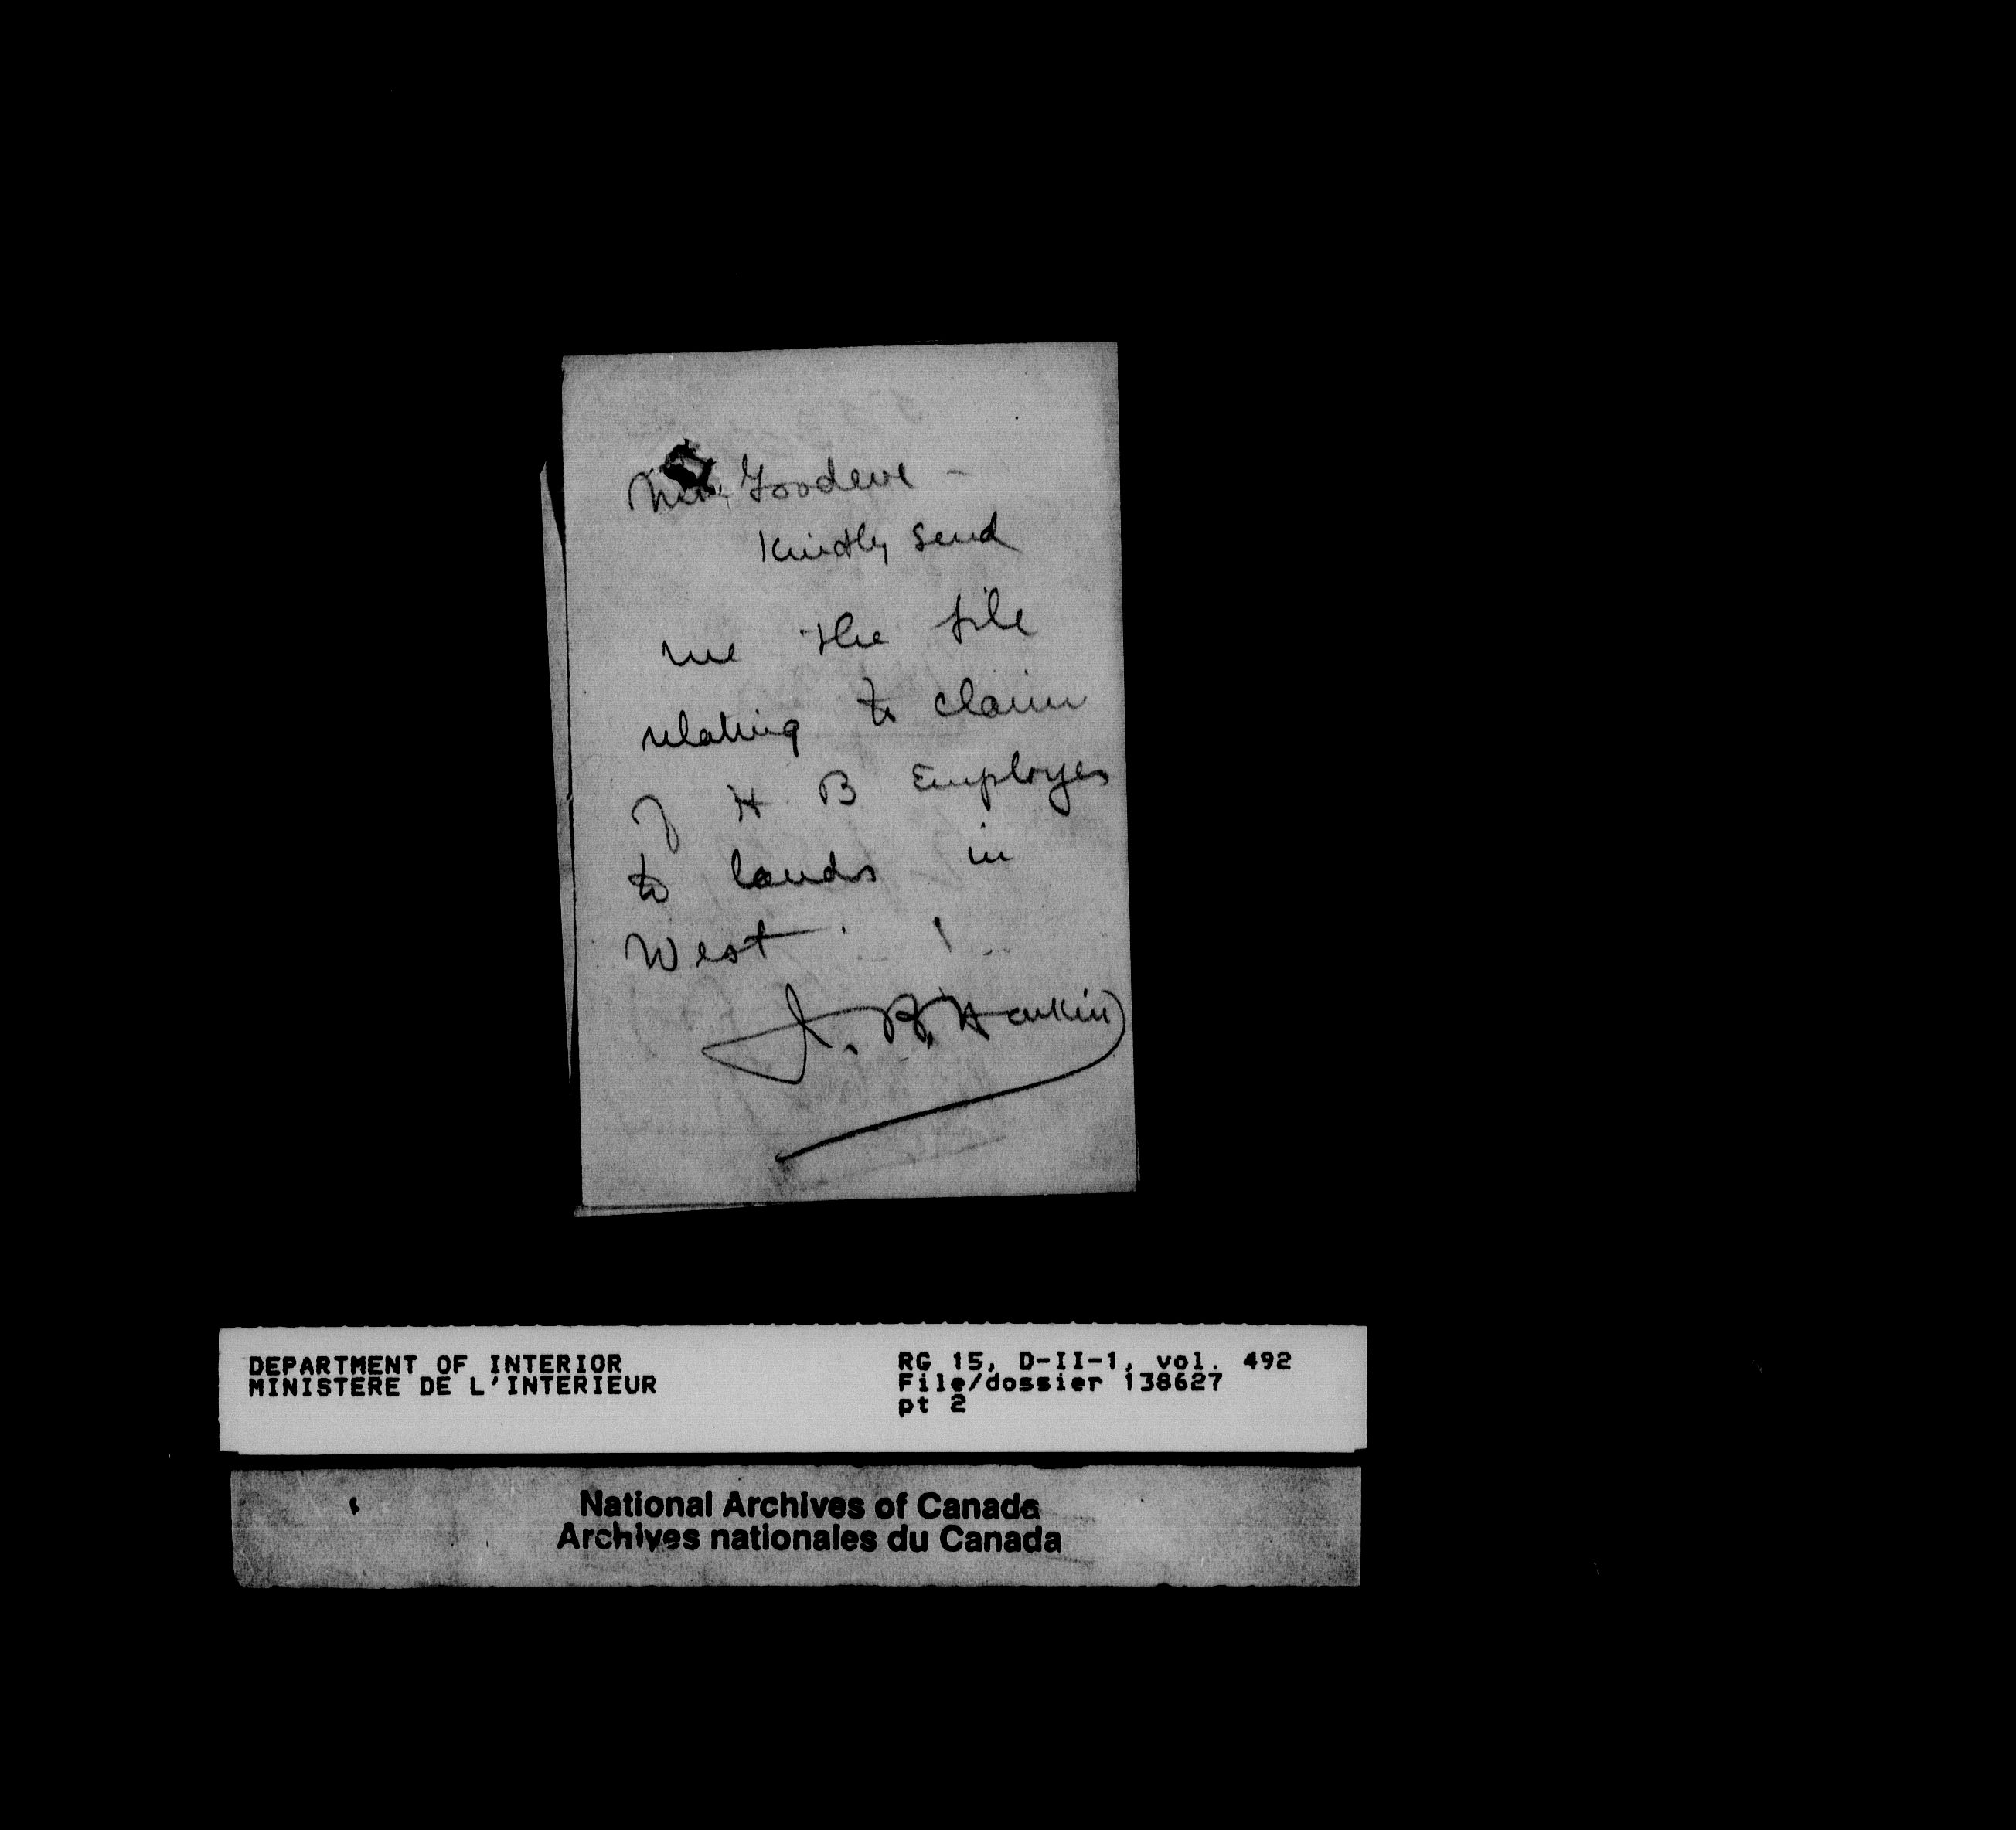 Goodeve -
Kindly send
me the file
relating to claim
of H B Employes
to lands in
West
J. B. Harkin
DEPARTMENT OF INTERIOR
MINISTERE DE L'INTERIEUR
RG 15, D-II-1, vol. 492
File/dossier 138627
pt 2
National Archives of Canada
Archives nationales du Canada